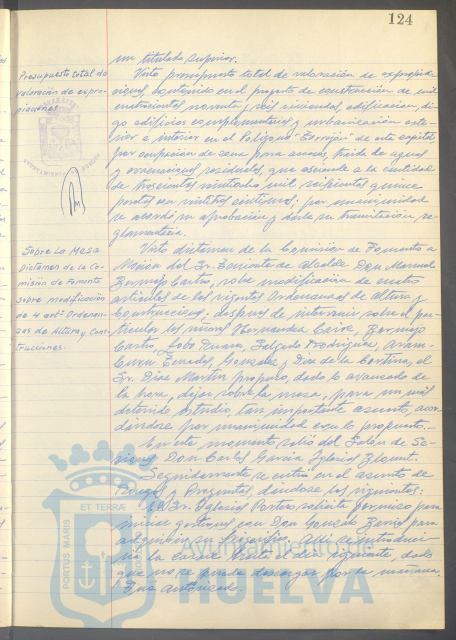 124
un titulado superior.
Presupuesto total de
valoración de expro-
piaciones
Visto presupuesto total de valoración de expropia-
ciones, contenido en el proyecto de construcción de mil
cuatrocientas noventa y seis viviendas, edificación, di-
go edificios complementarios y urbanización exte-
rior e interior en el Polígono "Torrejón" de esta capital
por ocupación de zona para acceso, traída de aguas
y residuales, que asciende a la cantidad
de trescientas mil setecientas quince
pesetas con céntimos; por unanimidad
se acordó su aprobación y darle su tramitación re-
glamentaria.
Sobre La Mesa
Dictamen de la Co-
misión de Fomento
sobre modificación
de 4 artº Ordenan-
zas de Altura y Cons-
trucciones.
Visto dictamen de la Comisión de Fomento a
Moción del Sr. Teniente de Alcalde Don Manuel
Bermejo Castro, sobre modificación de cuatro
artículos de las vigentes Ordenanzas de altura y
Construcciones; después de intervenir sobre el par-
ticular los señores Hernández Bermejo
Castro, Lobo Salgado Rodríguez,
González y Díaz de la Cortina, el
Sr. Díaz Martín propuso, dado lo avanzado de
la hora, dejar sobre la mesa, para un más
detenido estudio, tan importante asunto, acor-
dándose por unanimidad con lo propuesto.-
En este momento salió del Salón de Se-
siones Don Carlos García Iglesias
Seguidamente se entró en el asunto de
Ruegos y Preguntas, dándose los siguientes:
El Sr. Iglesias solicita permiso para
iniciar gestiones con Don Gonzalo para
adquirir su frigorífico. Allí se introduci-
ría la carne hasta el día siguiente, dado
que no se puede descargar por la mañana.
Fué autorizado.
ET TERRÆ
PORTUS MARIS
AYUNTAMIENTO DE
HUELVA